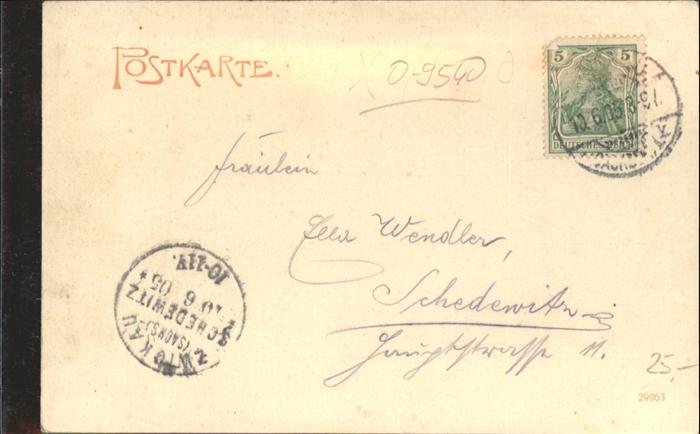 POSTKARTE.
0-9540
5 5
DEUTSCHES REICH
10.6.05 8-9V.
Fräulein
Ella Wendler,
Schedewitz
Hauptstrasse 11.
ZWICKAU
(SACHS.)
SCHEDEWITZ
10 6 05
10-11V.
25.-
29963